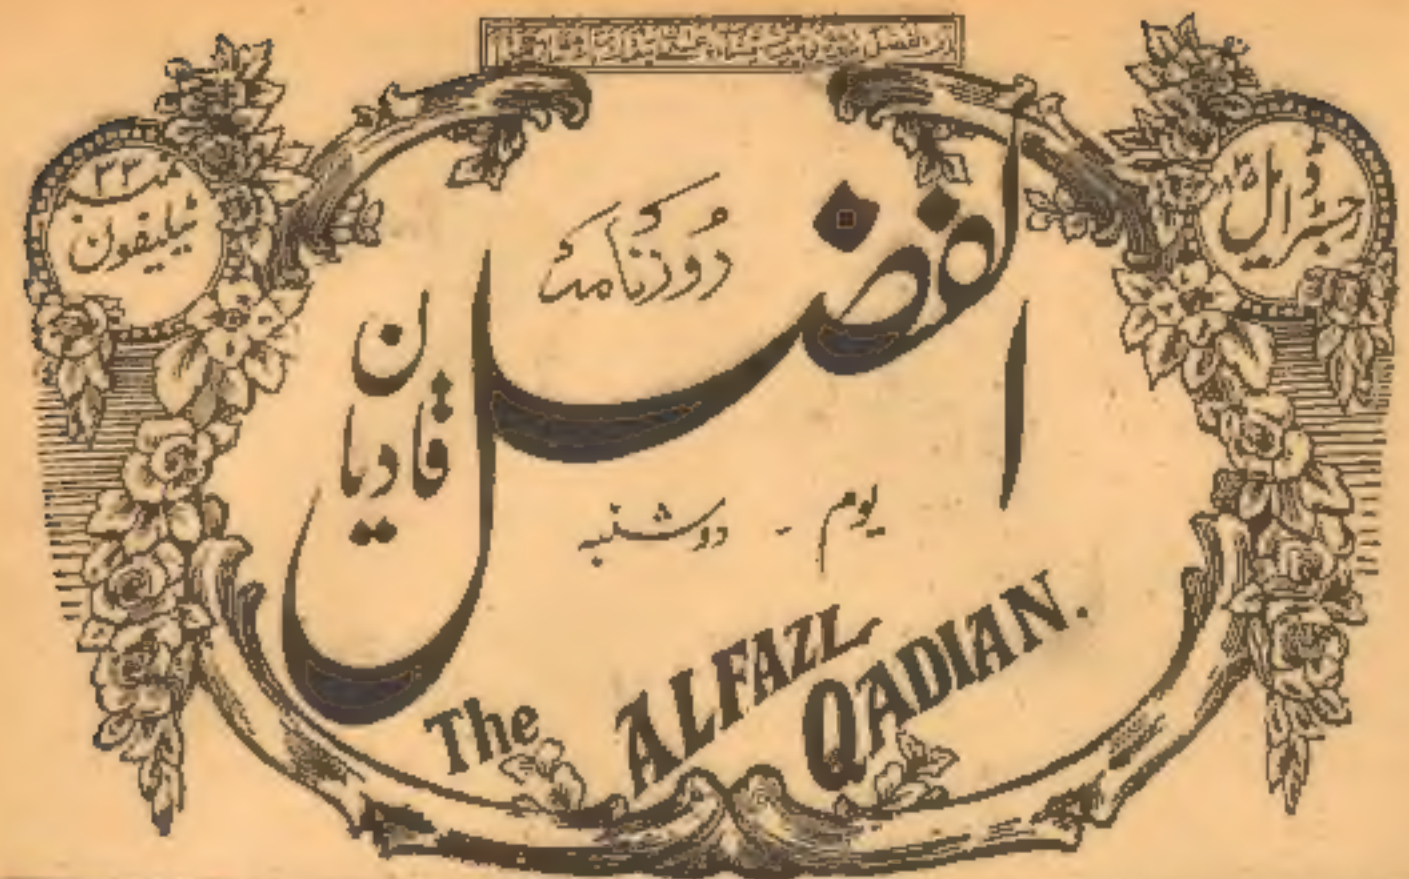 رجسٹرڈ ایل
ٹیلیفون نمبر ۳۳
روزنامہ
الفضل
قادیان
یوم - دوشنبہ
The ALFAZL
QADIAN.